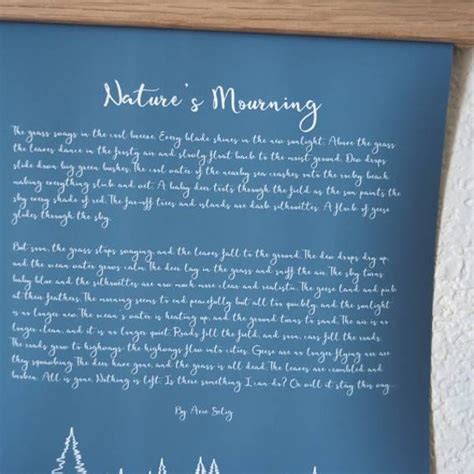 Nature's Mourning
The grass sways in the cool breeze. Every blade shines in the new sunlight. Above the grass
the leaves dance in the frosty air and slowly float back to the moist ground. Dew drops
slide down big green bushes. The cool water of the nearby sea crashes into the rocky beach
making everything slick and wet. A baby deer trots through the field as the sun paints the
sky every shade of red. The far-off trees and islands are dark silhouettes. A flock of geese
glides through the sky.
But soon, the grass stops swaying, and the leaves fall to the ground. The dew drops dry up,
and the ocean water grows calm. The deer lay in the grass and sniff the air. The sky turns
baby blue and the silhouettes are now much more clear and realistic. The geese land and pub
at their feathers. The morning seems to end peacefully but all too quickly, and the sunlight
is no longer new. The ocean's water is heating up, and the ground turns to sand. The air is no
longer clean, and it is no longer quiet. Roads fill the field, and soon, cars fill the roads.
The roads grow to highways; the highways flow into cities. Geese are no longer flying nor are
they squawking. The deer have gone, and the grass is all dead. The leaves are crumbled and
broken. All is gone. Nothing is left. Is there something I can do? Or will it stay this way...
By Arie Soley